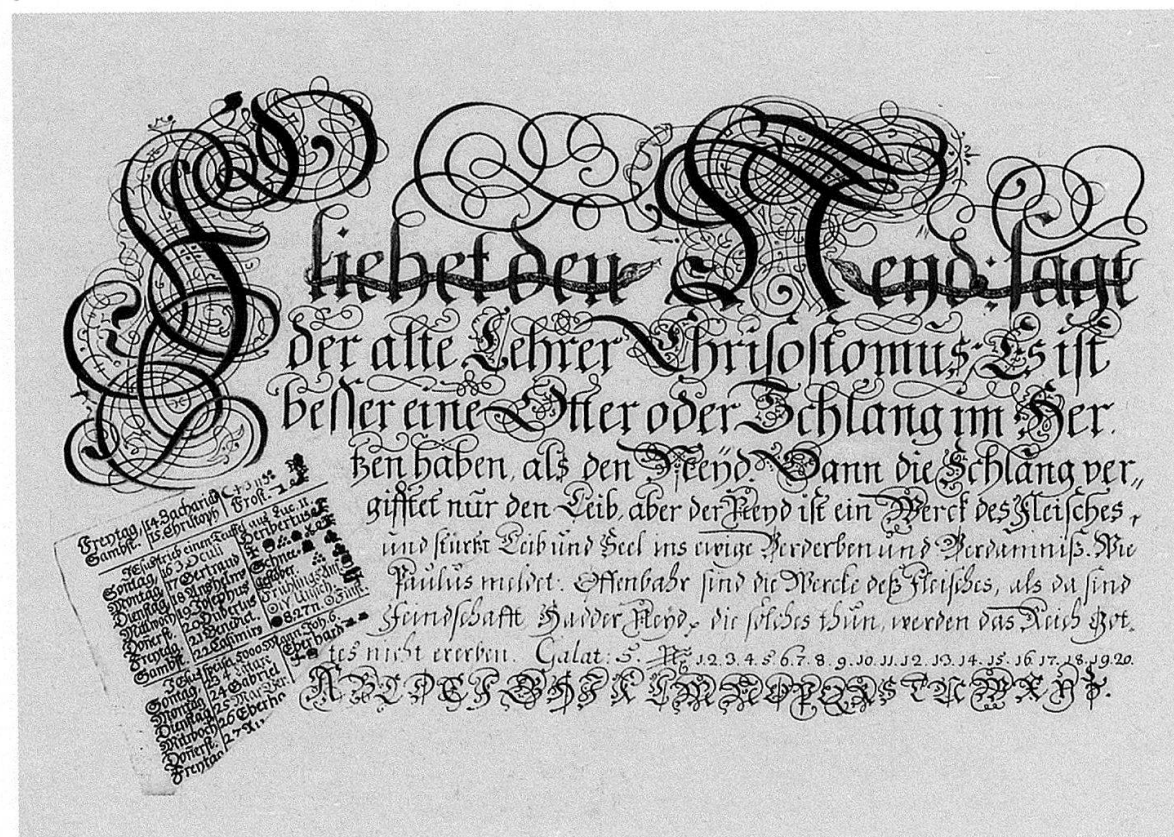 Fliehet den Neyd: sagt
der alte Lehrer Chrisostomus: Es ist
besser eine Otter oder Schlang im Her.
tzen haben, als den Neyd. Dann die Schlang ver„
gifftet nur den Leib, aber der Neyd ist ein Werck des Fleisches,
und stürtzt Leib und Seel ins ewige Verderben und Verdamniß. Wie
Paulus meldet: Offenbahr sind die Wercke deß Fleisches, als da sind
Feindschafft Hadder Neyd, die solches thun, werden das Reich Got.
tes nicht ererben. Galat: 5. 1. 2. 3. 4. 5. 6. 7. 8. 9. 10. 11. 12. 13. 14. 15. 16. 17. 18. 19. 20.
A B C D E F G H I K L M N O P Q R S T U W X Y Z.
Freytag 14. Zacharias
Samst. 15. Christoph Frost.
JEsus trieb einen Teuffel aus Luc. 11.
Sontag 16 3. Oculi Heribertus
Montag 17 Gertraud
Dienstag 18 Anshelmus Schnee
Mitwoch 19 Josephus gestöber.
Donerst. 20 Rupertus Frühlings Anf.
Freytag 21 Benedict.
Samst. 22 Casimirs 8. 27 n.
JEsus speiset 5000 Mann Joh. 6.
Sontag 23 4. Lätare Eberhard
Montag 24 Gabriel
Dienstag 25 Mar. Ver
Mitwoch 26 Eberha
Donerst. 27
Freytag